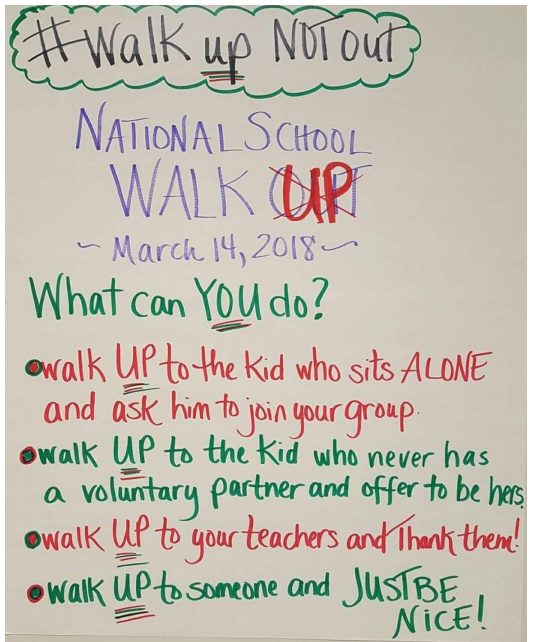 #Walk up NOT out
NATIONAL SCHOOL
WALK OUT UP
~ March 14, 2018 ~
What can YOU do?
walk UP to the kid who sits ALONE
and ask him to join your group.
walk UP to the kid who never has
a voluntary partner and offer to be hers.
walk UP to your teachers and Thank them!
walk UP to someone and JUST BE
NiCE!